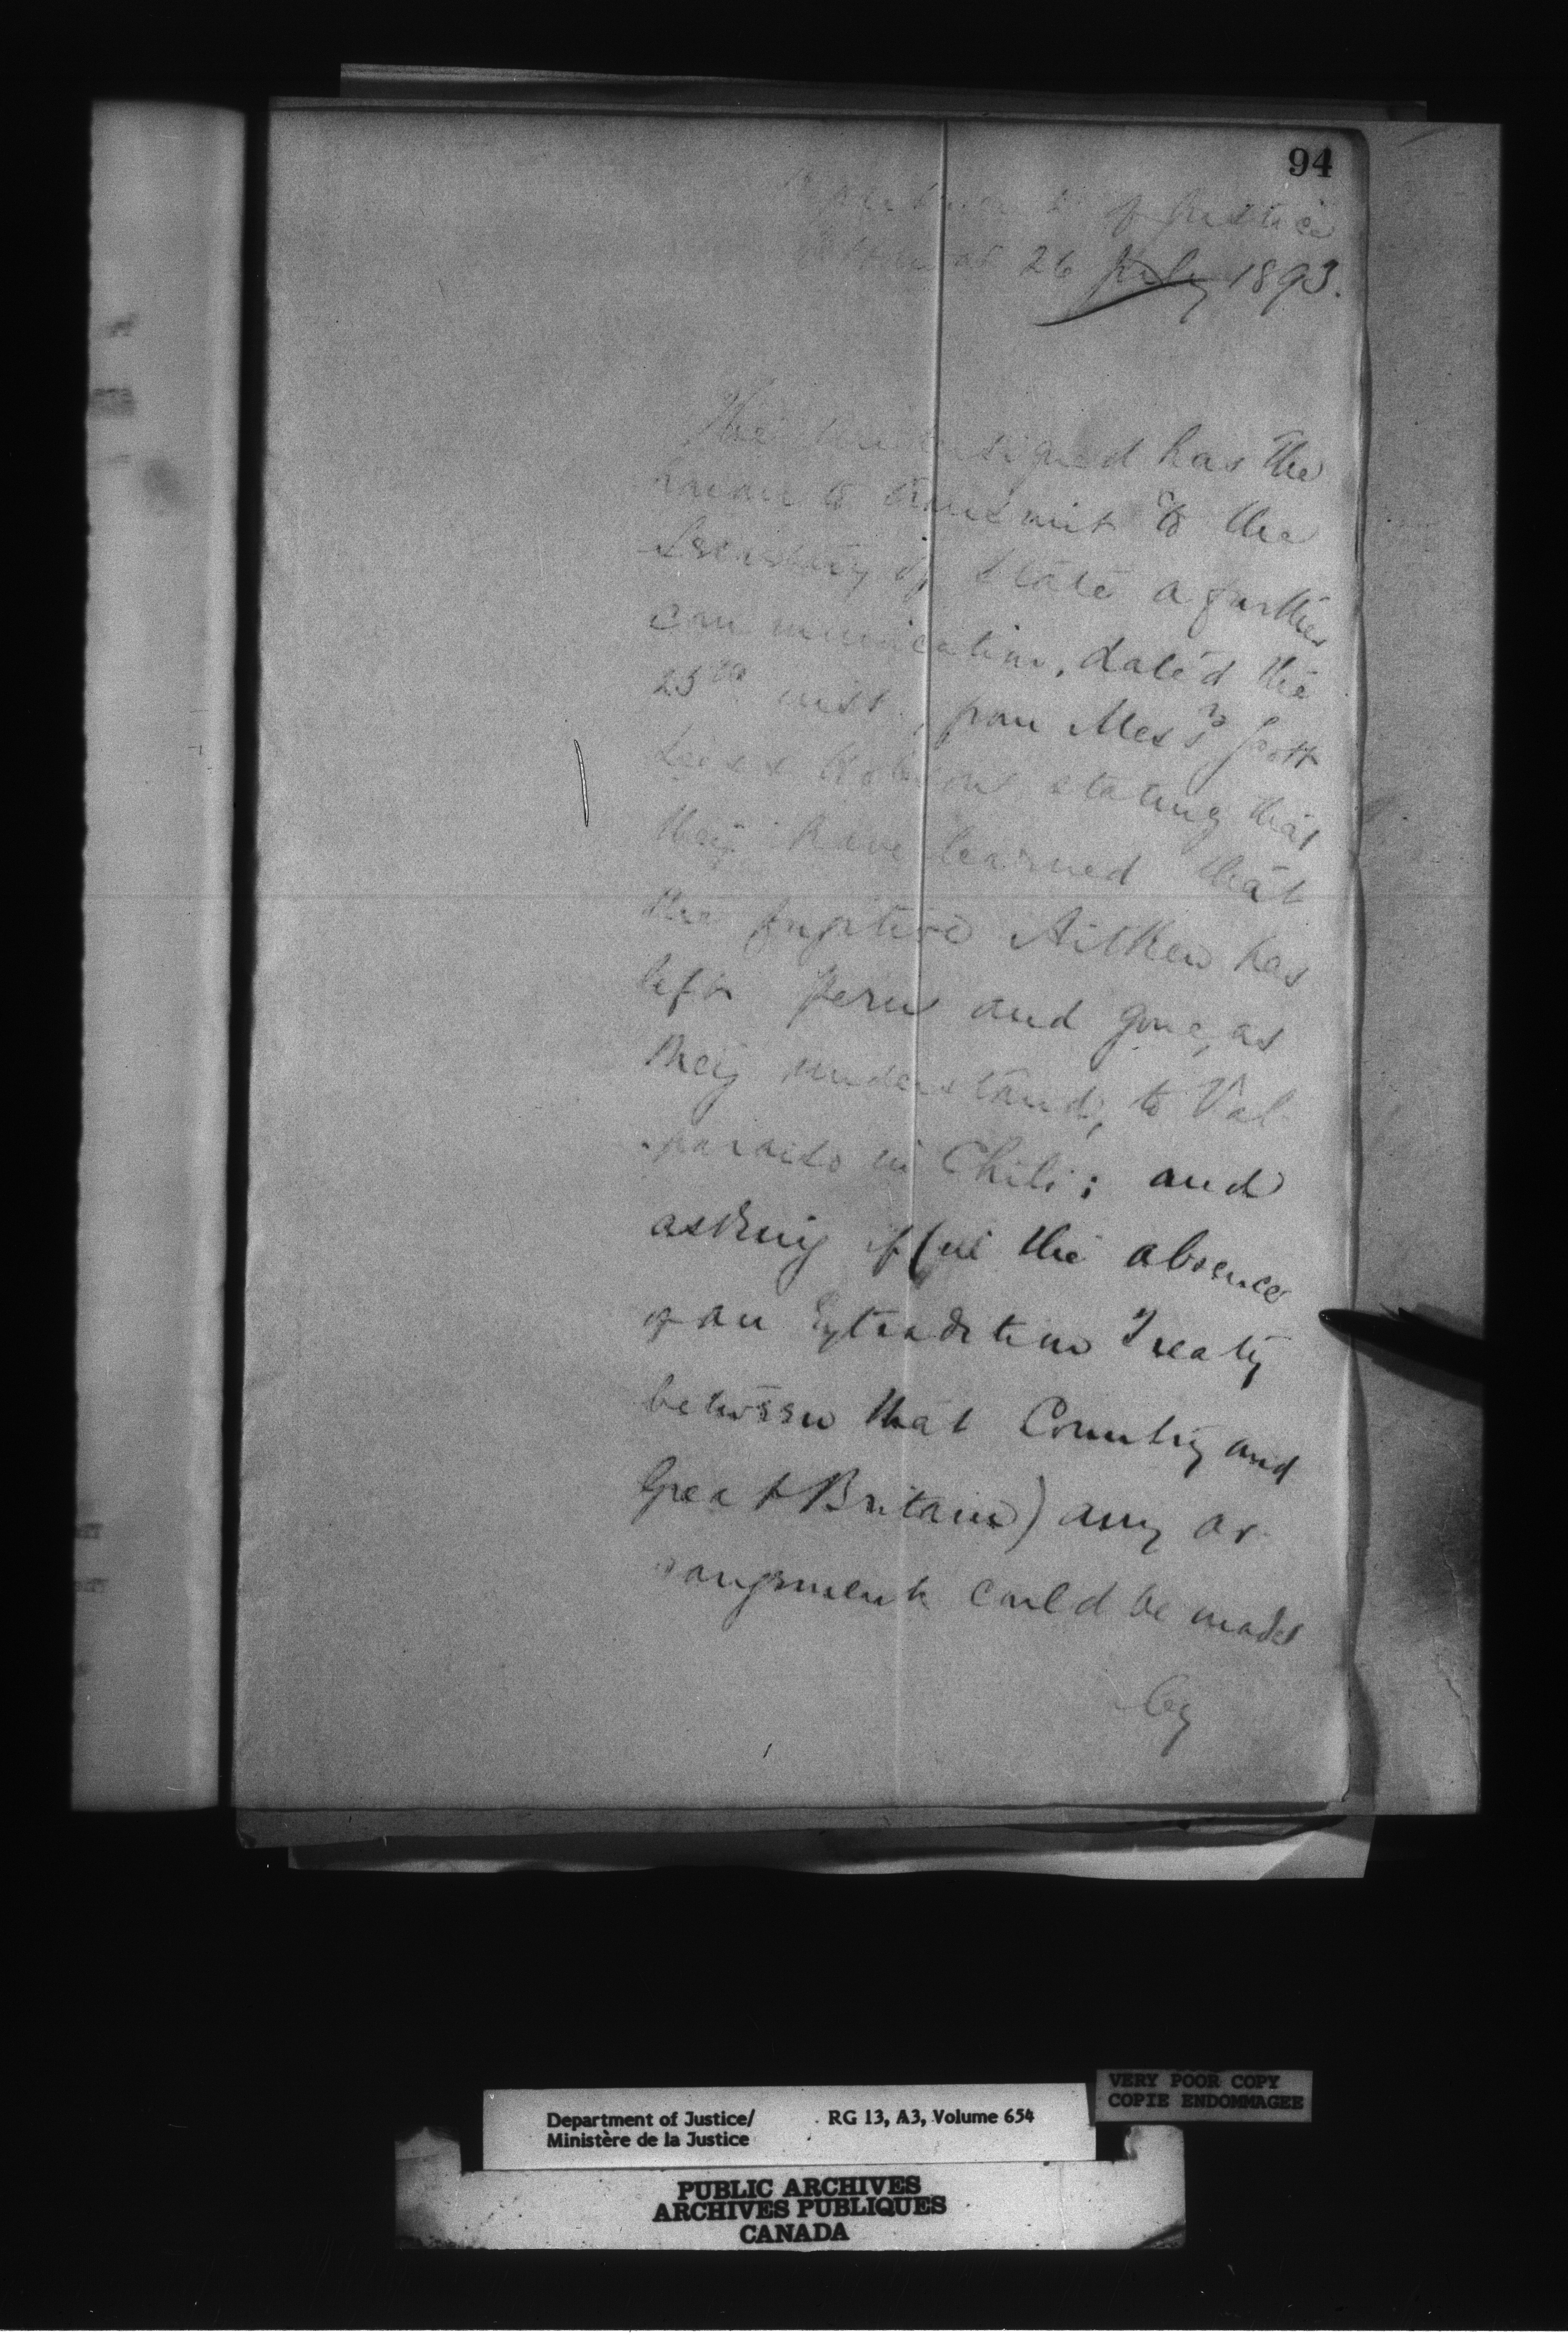 94
Department of Justice
Ottawa 26 July 1893.
The undersigned has the
honour to transmit to the
Secretary of State a further
communication, dated the
25th inst., from Messrs Scott
Lees & Hobson stating that
they have learned that
the fugitive Aitken has
left Peru and gone, as
they understand, to Val-
paraiso in Chili; and
asking if (in the absence
of an Extradition Treaty
between that Country and
Great Britain) any ar-
rangement could be made
by
Department of Justice/ RG 13, A3, Volume 654
Ministère de la Justice
VERY POOR COPY
COPIE ENDOMMAGEE
PUBLIC ARCHIVES
ARCHIVES PUBLIQUES
CANADA